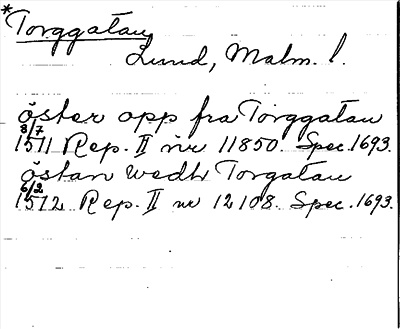 *Torggatan
Lund, Malm. l.
öster opp fra Torggatau
8/7
1511 Rep. II nr 11850. Spec. 1693.
östan wedh Torgatau
6/2
1512 Rep. II nr 12108. Spec. 1693.